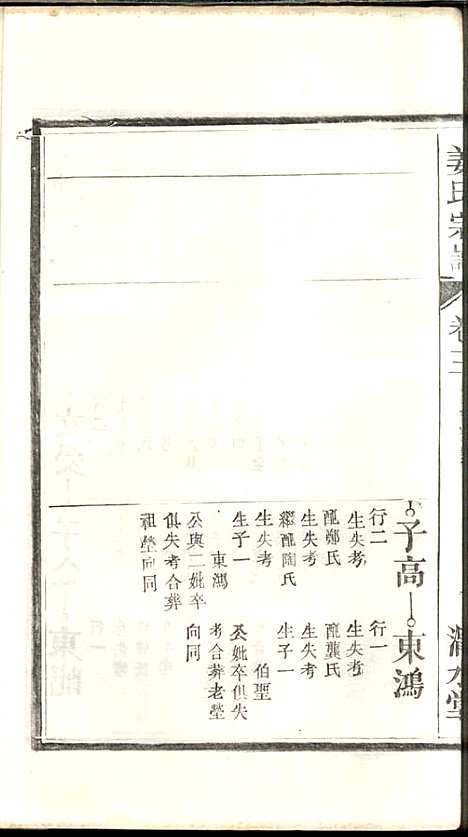 姜氏宗譜
卷三
渭水堂
子高
行二
生失考
配鄭氏
生失考
繼配陶氏
生失考
生子一
東鴻
公與二妣卒
俱失考合葬
祖塋向同
東鴻
行一
生失考
配龔氏
生失考
生子一
伯聖
公妣卒俱失
考合葬老塋
向同